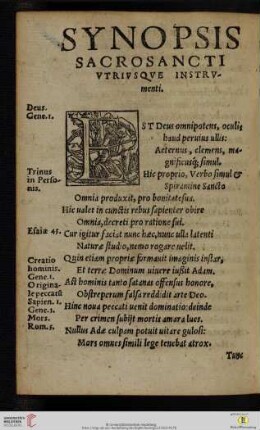 SYNOPSIS
SACROSANCTI
VTRIVSQVE INSTRV-
menti.
Deus.
Gene.1.
EST Deus omnipotens, oculis
haud peruius ullis:
Aeternus, clemens, ma-
gnificusq; simul.
Trinus
in Perso-
nis.
Hic proprio, Verbo simul &
Spiramine Sancto
Omnia produxit, pro bonitate sua.
Hic ualet in cunctis rebus sapienter obire
Omnia, decreti pro ratione sui.
Esaiæ 45.
Cur igitur faciat nunc hæc, nunc illa latenti
Naturæ studio, nemo rogare uelit.
Creatio
hominis.
Gene.1.
Quin etiam propriæ formauit imaginis instar,
Et terræ Dominum uiuere iussit Adam.
Origina-
le peccatũ
Sapien. 2.
Gene.3.
Ast hominis tanto satanas offensus honore,
Obstreperum falsa reddidit arte Deo.
Hinc noua peccati uenit dominatio: deinde
Mors.
Rom.5.
Per crimen subijt mortis amara lues.
Nullus Adæ culpam potuit uitare gulosi:
Mors omnes simili lege tenebat atrox.
Tunc